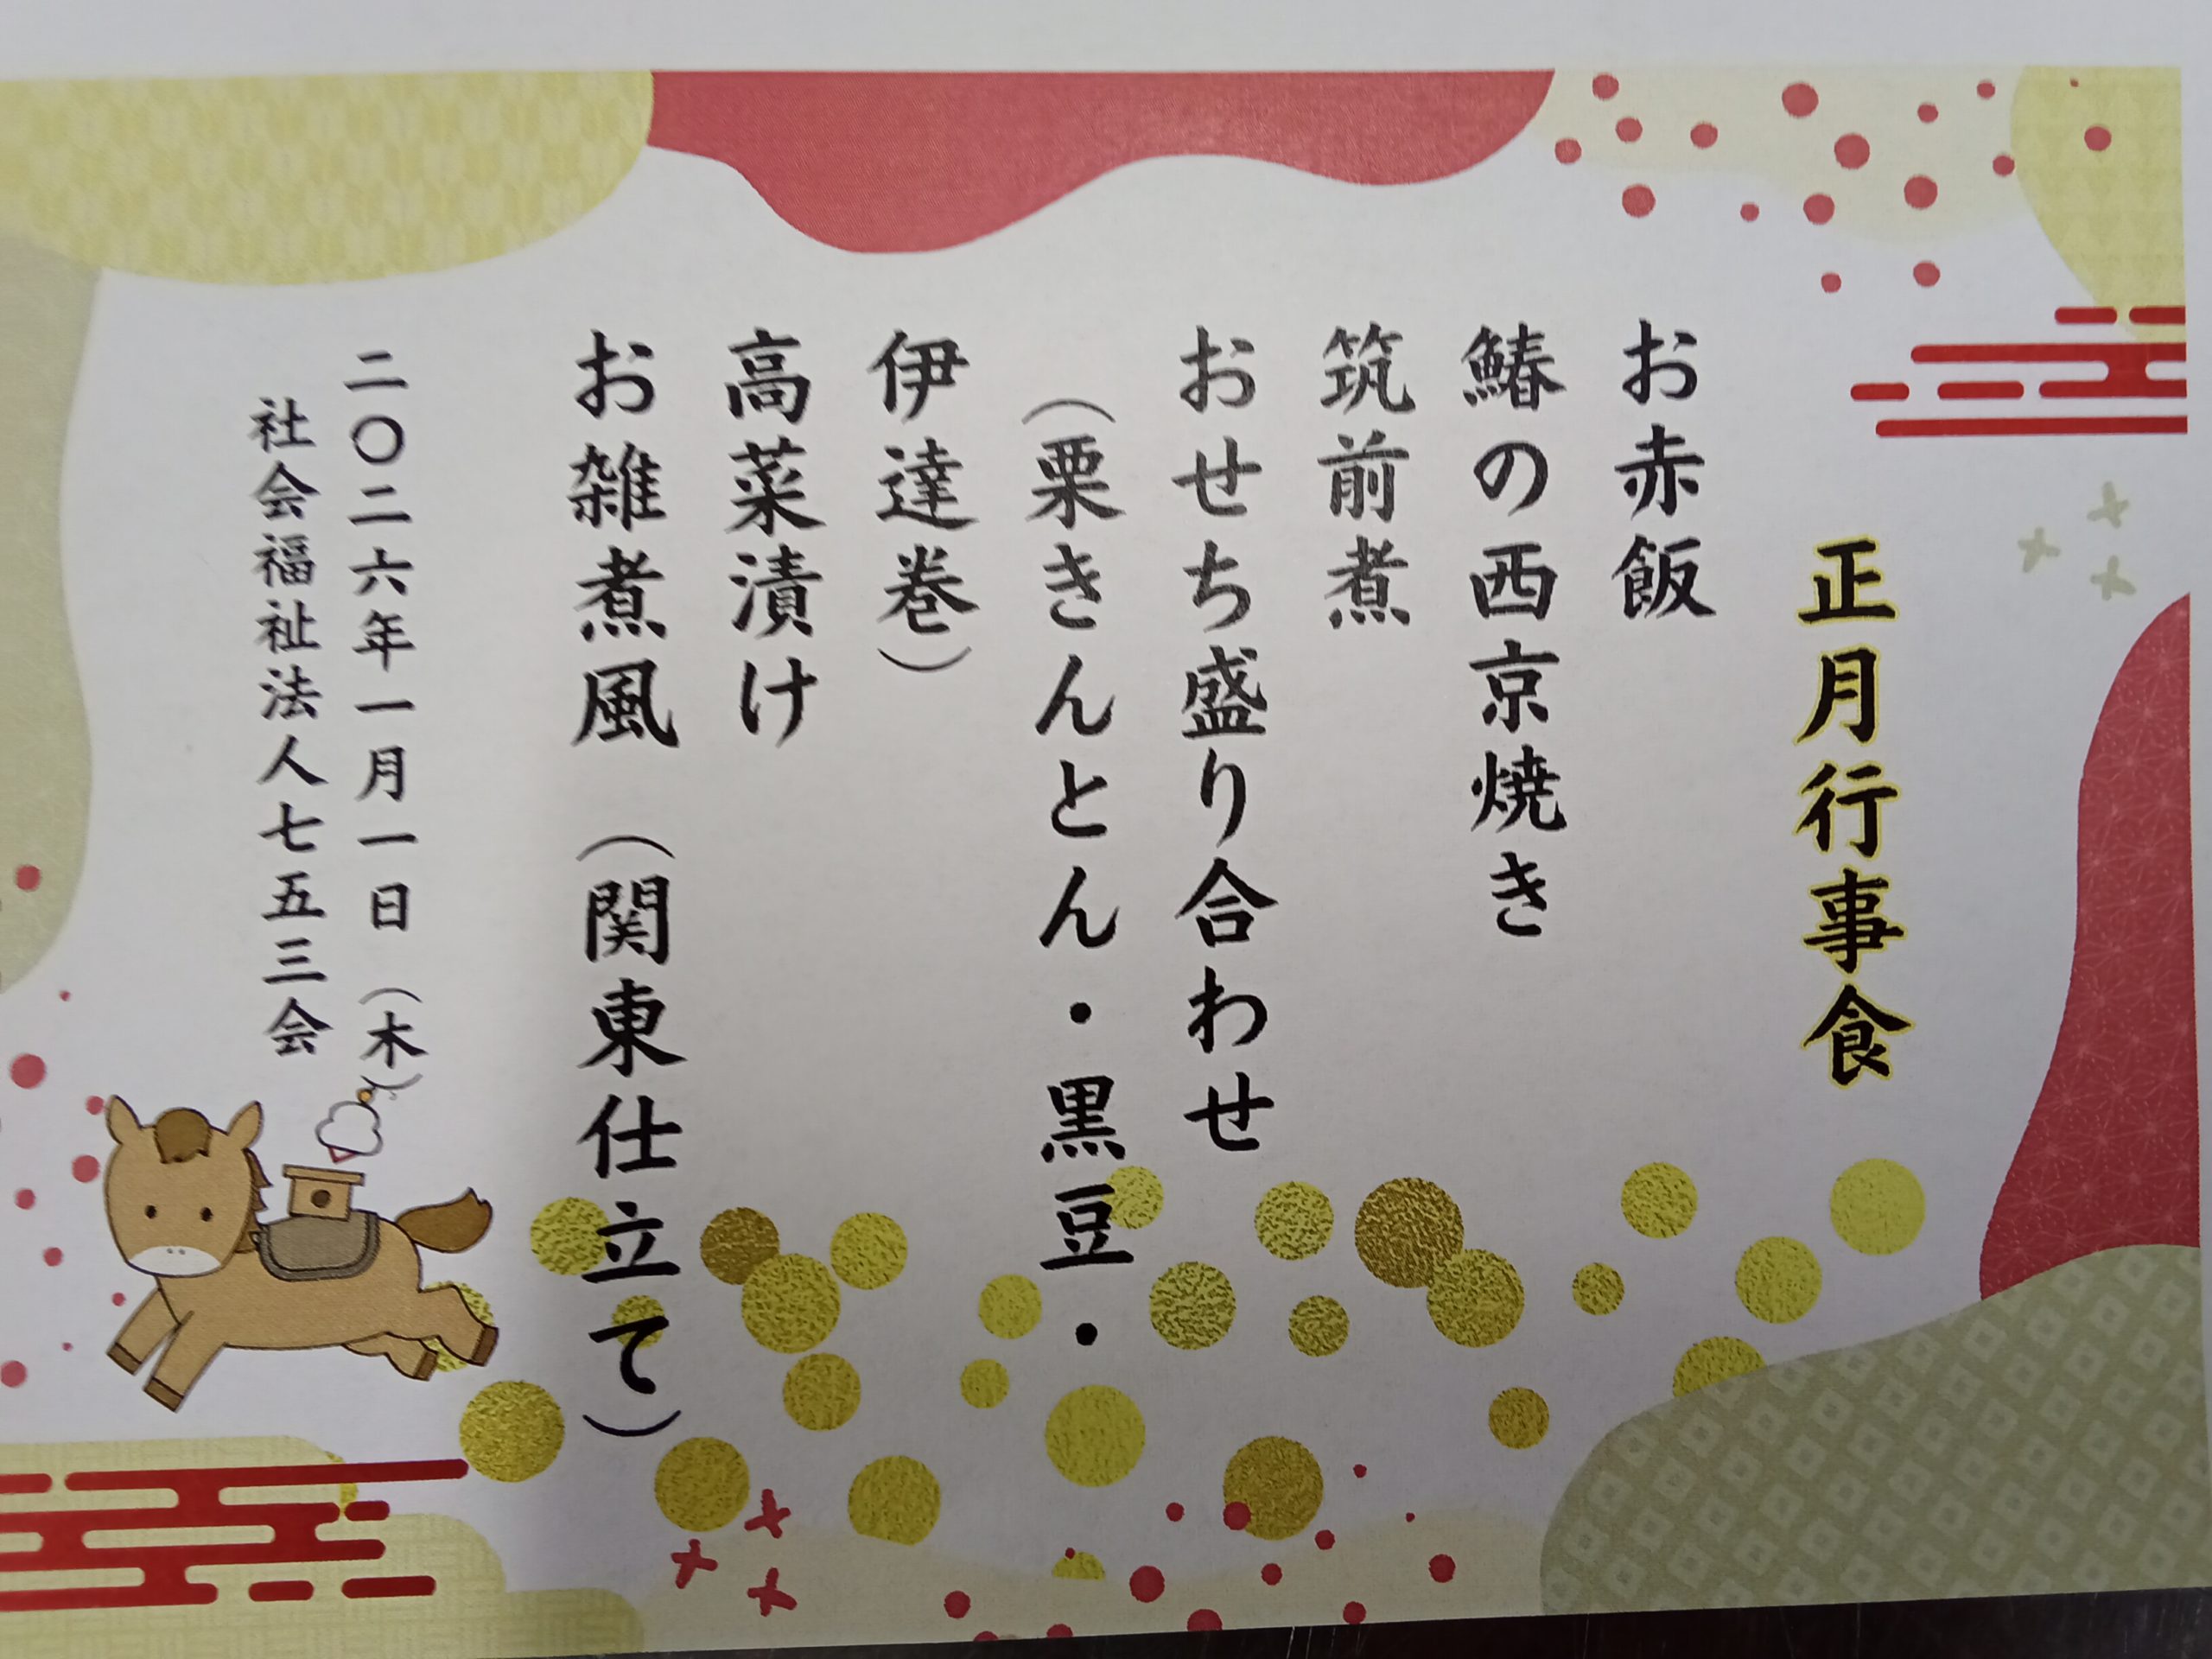 正月行事食
お赤飯
鰆の西京焼き
筑前煮
おせち盛り合わせ
（栗きんとん・黒豆・
伊達巻）
高菜漬け
お雑煮風（関東仕立て）
二〇二六年一月一日（木）
社会福祉法人七五三会